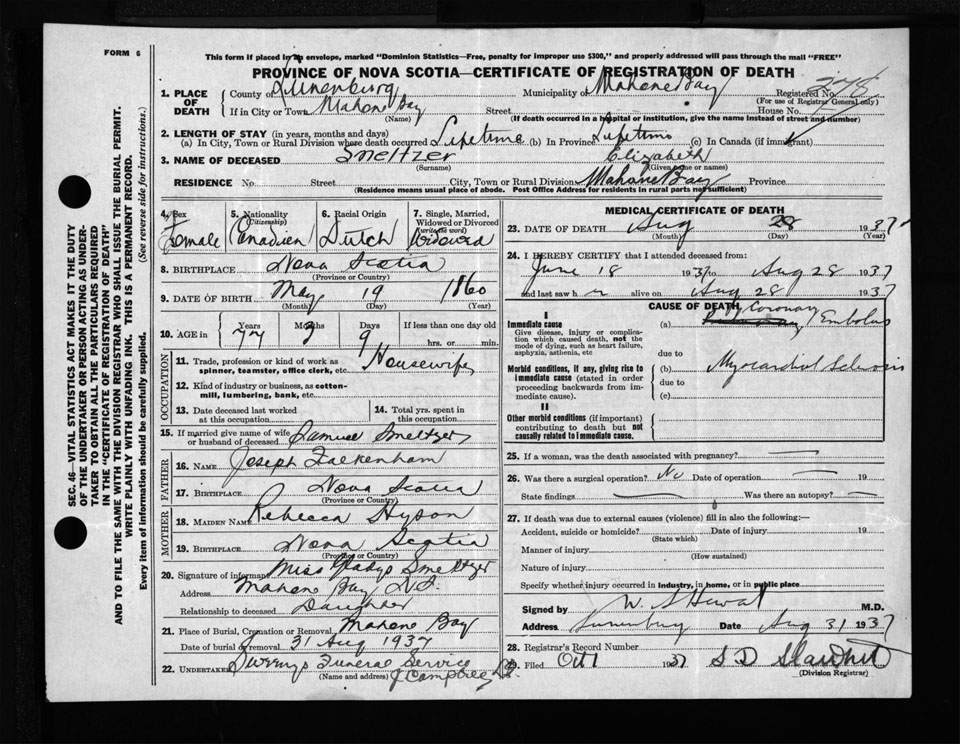 FORM 6
This form if placed in an envelope, marked "Dominion Statistics—Free, penalty for improper use $300," and properly addressed will pass through the mail "FREE"
PROVINCE OF NOVA SCOTIA—CERTIFICATE OF REGISTRATION OF DEATH
1. PLACE OF DEATH
County of Lunenburg Municipality of Mahone Bay Registered No.
(For use of Registrar General only)
If in City or Town Mahone Bay Street House No.
(Name) (If death occurred in a hospital or institution, give the name instead of street and number)
2. LENGTH OF STAY (in years, months and days)
(a) In City, Town or Rural Division where death occurred Lifetime (b) In Province Lifetime (c) In Canada (if immigrant)
3. NAME OF DECEASED Smeltzer Elizabeth
(Surname) (Given name or names)
RESIDENCE No. Street City, Town or Rural Division Mahone Bay Province
(Residence means usual place of abode. Post Office Address for residents in rural parts not sufficient)
SEC. 46—VITAL STATISTICS ACT MAKES IT THE DUTY
OF THE UNDERTAKER OR PERSON ACTING AS UNDER-
TAKER TO OBTAIN ALL THE PARTICULARS REQUIRED
IN THE "CERTIFICATE OF REGISTRATION OF DEATH"
AND TO FILE THE SAME WITH THE DIVISION REGISTRAR WHO SHALL ISSUE THE BURIAL PERMIT.
WRITE PLAINLY WITH UNFADING INK. THIS IS A PERMANENT RECORD.
Every item of information should be carefully supplied. (See reverse side for instructions.)
4. Sex 5. Nationality (Citizenship) 6. Racial Origin 7. Single, Married, Widowed or Divorced (write the word)
Female Canadian Dutch Widowed
8. BIRTHPLACE Nova Scotia
(Province or Country)
9. DATE OF BIRTH May 19 1860
(Month) (Day) (Year)
10. AGE in Years Months Days If less than one day
77 3 9 hrs. or min.
OCCUPATION
11. Trade, profession or kind of work as spinner, teamster, office clerk, etc. Housewife
12. Kind of industry or business, as cotton-mill, lumbering, bank, etc.
13. Date deceased last worked at this occupation
14. Total yrs. spent in this occupation
15. If married give name of wife or husband of deceased Samuel Smeltzer
FATHER
16. NAME Joseph Zackenham
17. BIRTHPLACE Nova Scotia
(Province or Country)
MOTHER
18. MAIDEN NAME Rebecca Hyson
19. BIRTHPLACE Nova Scotia
(Province or Country)
20. Signature of informant Miss Gladys Smeltzer
Address Mahone Bay N.S.
Relationship to deceased Daughter
21. Place of Burial, Cremation or Removal Mahone Bay
Date of burial or removal 31 Aug 1937
22. UNDERTAKER Funeral Service
(Name and address)
MEDICAL CERTIFICATE OF DEATH
23. DATE OF DEATH Aug 28 1937
(Month) (Day) (Year)
24. I HEREBY CERTIFY that I attended deceased from:
June 18 1937 to Aug 28 1937
and last saw her alive on Aug 28 1937
CAUSE OF DEATH
I
Immediate cause
Give disease, injury or complication which caused death, not the mode of dying, such as heart failure, asphyxia, asthenia, etc
(a) Coronary Embolus
due to
Morbid conditions, if any, giving rise to immediate cause (stated in order proceeding backwards from immediate cause).
(b) Myocardial Sclerosis
due to
(c)
II
Other morbid conditions (if important) contributing to death but not causally related to immediate cause.
25. If a woman, was the death associated with pregnancy?
26. Was there a surgical operation? No Date of operation 19
State findings Was there an autopsy?
27. If death was due to external causes (violence) fill in also the following:—
Accident, suicide or homicide? Date of injury 19
(State which)
Manner of injury
(How sustained)
Nature of injury
Specify whether injury occurred in industry, in home, or in public place
Signed by M.D.
Address Lunenburg Date Aug 31 1937
28. Registrar's Record Number
29. Filed Oct 1 1937 S D
(Division Registrar)